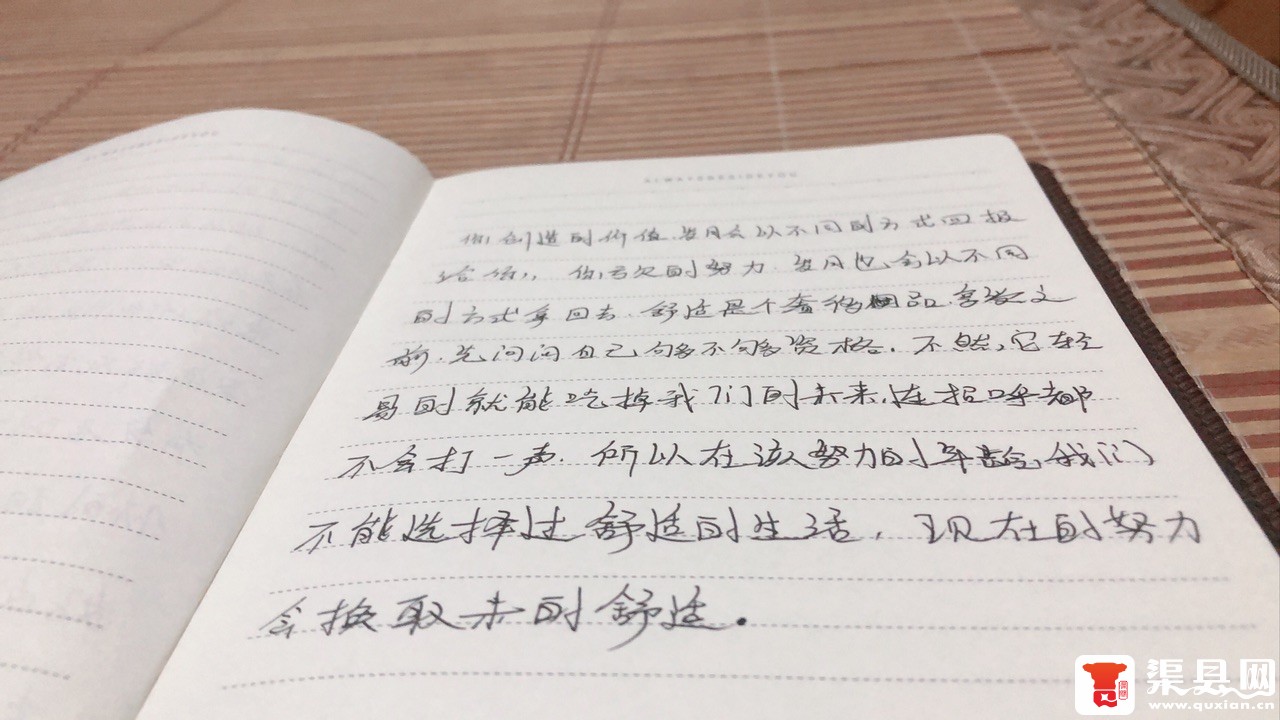 ALWAYSBESIDEYOU
你创造的价值.岁月会以不同的方式回报
给你,你亏欠的努力.岁月也会以不同
的方式拿回去.舒适是个奢侈品.享受之
前.先问问自己够不够资格.不然,它轻
易的就能吃掉我们的未来,连招呼都
不会打一声.所以在该努力的年龄,我们
不能选择过舒适的生活,现在的努力
会换取未的舒适.
渠县网
www.quxian.cn